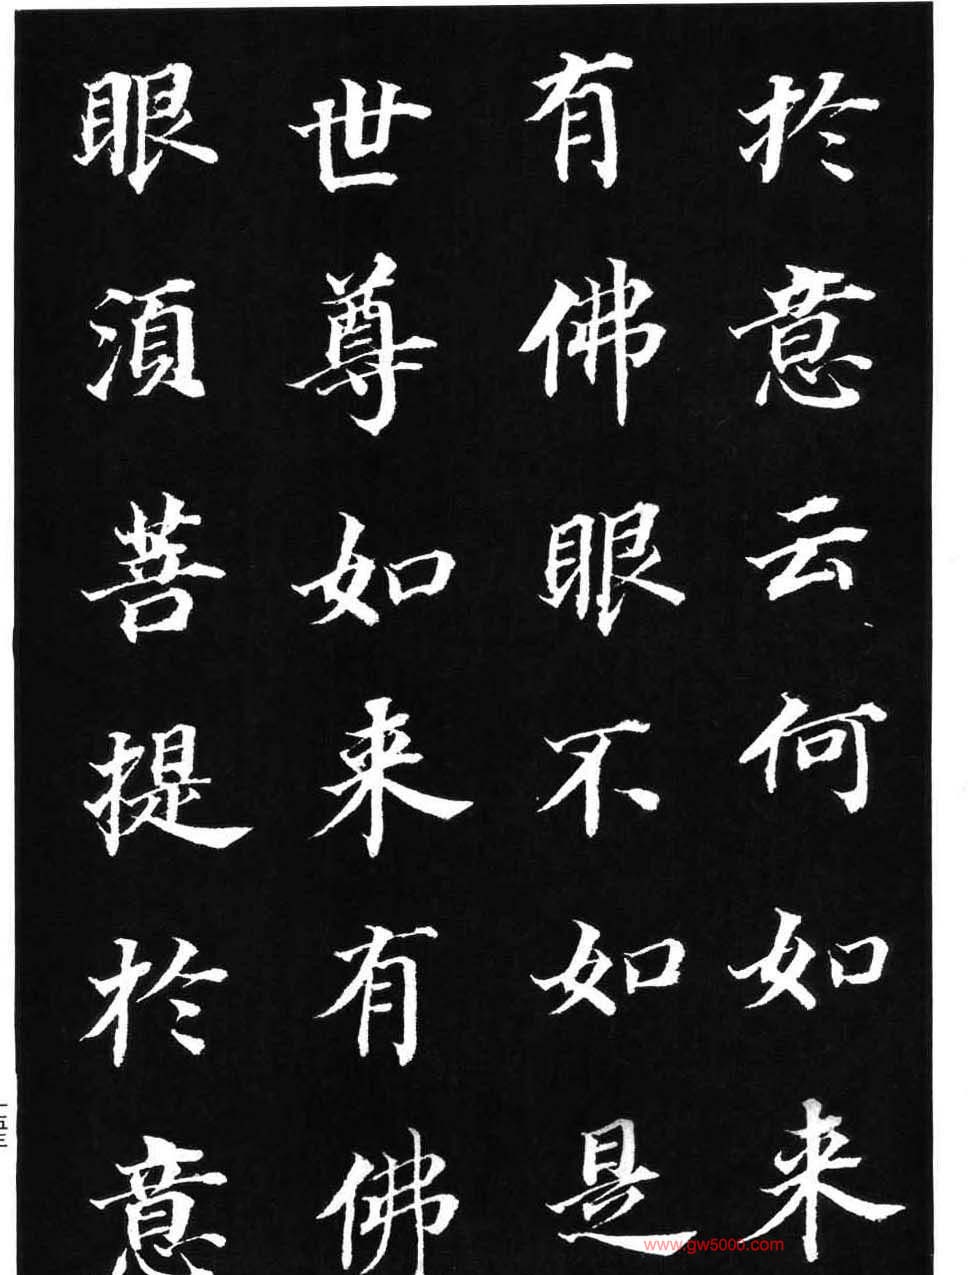 於意云何如来
有佛眼不如是
世尊如来有佛
眼湏菩提於意
www.gw5000.com